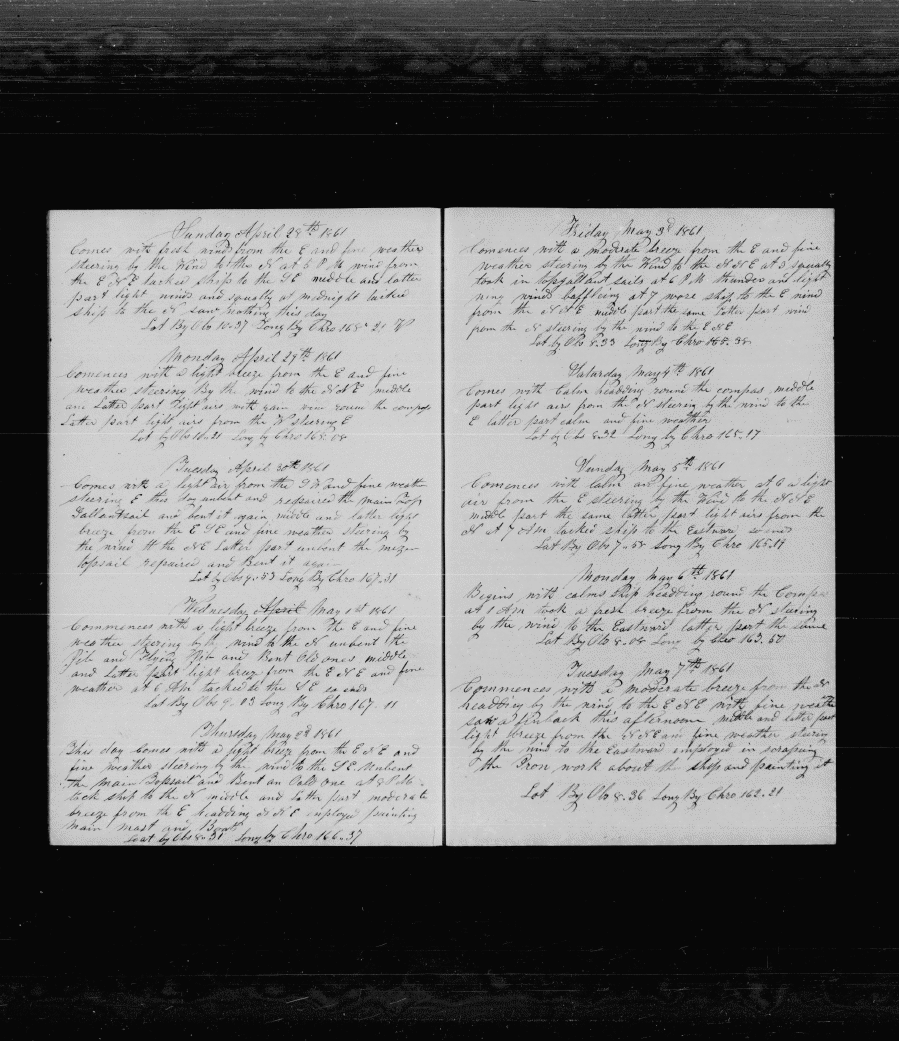 Sunday April 28th 1861
Comes with fresh wind from the E and fine weather
steering by the Wind to the N at 5 P M wind from
the E N E tacked ship to the S E middle and latter
part light winds and squally at midnight tacked
ship to the N saw nothing this day
Lat By Obs 10.37 Long By Chro 168. 21 W
Monday April 29th 1861
Comences with a light breeze from the E and fine
weather steering By the wind to the N at E middle
and Latter part light airs with rain wind round the compass
Latter part light airs from the W steering E
Lat by Obs 10.21 Long by Chro 168.08
Tuesday April 30th 1861
Comes with a light air from the S W and fine weath
steering E this day unbent and repaired the main Top
Gallantsail and bent it again middle and latter light
breeze from the E S E and fine weather steering by
the wind to the N E Latter part unbent the mizen
topsail repaired and Bent it again
Lat by Obs 9.53 Long By Chro 167.31
Wednesday April May 1st 1861
Commences with a light breeze from the E and fine
weather steering by the wind to the N unbent the
Jib and Flying Jib and Bent Old ones middle
and Latter part light breeze from the E N E and fine
weather at 6 AM tacked to the S E so ends
Lat By Obs 9.13 Long By Chro 167.11
Thursday May 2d 1861
This day Comes with a light breeze from the E N E and
fine weather steering by the wind to the S E unbent
the main Topsail and Bent an Old one at 2 P M
tack ship to the N middle and latter part moderate
breeze from the E heading N N E employed painting
main mast and
Lat by Obs 8.38 Long by Chro 166.37
Friday May 3d 1861
Comences with a moderate breeze from the E and fine
weather steering by the Wind to the N N E at 3 squally
took in topgallant sails at 6 P M thunder and light
ning winds baffleing at 7 wore ship to the E wind
from the N N E middle part the same latter part wind
from the N steering by the wind to the E N E
Lat by Obs 8.33 Long By Chro 165.38
Saturday May 4th 1861
Comes with Calm heading round the compas middle
part light airs from the N steering by the wind to the
E latter part calm and fine weather
Lat by Obs 8.32 Long by Chro 165.17
Sunday May 5th 1861
Comences with calm and fine weather at 6 a light
air from the E steering by the Wind to the N N E
middle part the same latter part light airs from the
N at 7 AM tacked ship to the Eastward so ends
Lat By Obs 7.58 Long By Chro 165.19
Monday May 6th 1861
Begins with calms ship heading round the Compas
at 1 AM took a fresh breeze from the N steering
by the wind to the Eastward latter part the same
Lat By Obs 8.08 Long by Chro 163.50
Tuesday May 7th 1861
Commences with a moderate breeze from the N
heading by the wind to the E N E with fine weather
saw a finback this afternoon middle and latter part
light breeze from the N N E and fine weather steering
by the wind to the Eastward employed in scraping
the Iron work about the ship and painting it
Lat By Obs 8.36 Long By Chro 162.21